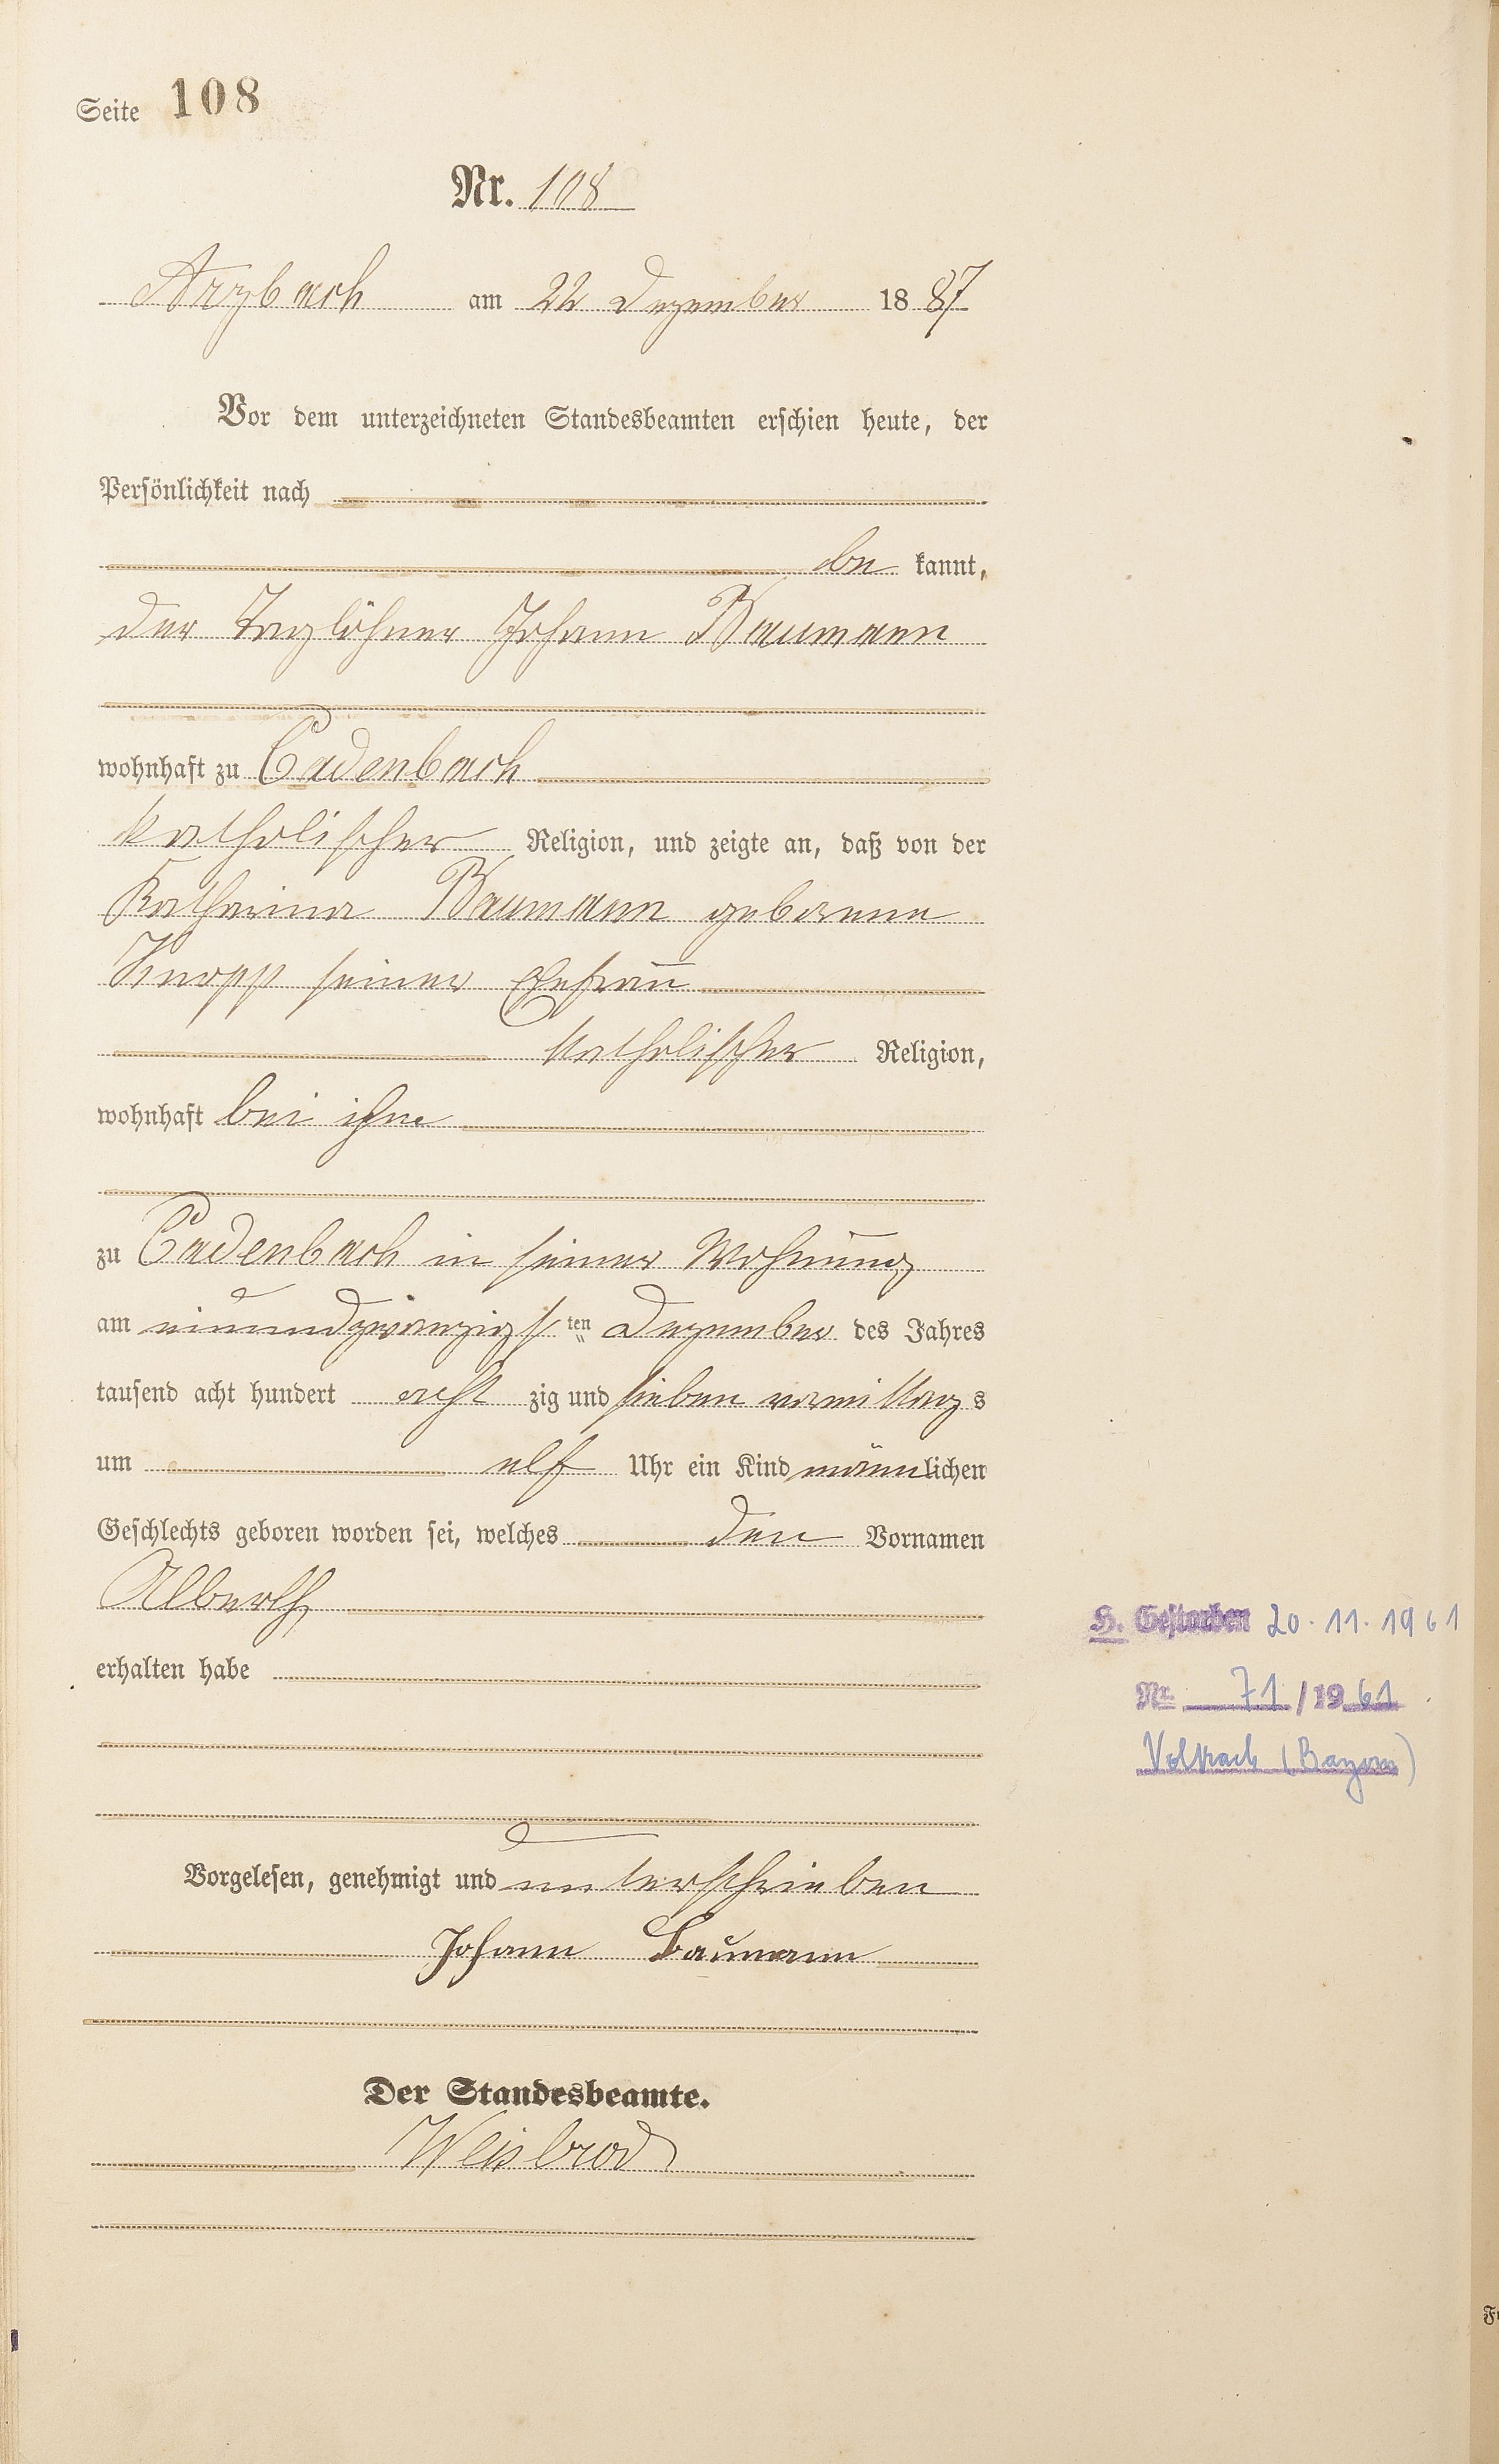 Seite 108
Nr. 108
Arzbach am 22 Dezember 1887
Vor dem unterzeichneten Standesbeamten erschien heute, der
Persönlichkeit nach
be kannt,
der Taglöhner Johann Baumann
wohnhaft zu Cadenbach
katholischer Religion, und zeigte an, daß von der
Katharina Baumann geborene
Knopp seiner Ehefrau
katholischer Religion,
wohnhaft bei ihm
zu Cadenbach in seiner Wohnung
am einundzwanzigsten Dezember des Jahres
tausend acht hundert acht zig und sieben vormittags
um elf Uhr ein Kind männlichen
Geschlechts geboren worden sei, welches den Vornamen
Alberth
H. Gestorben 20.11.1961
erhalten habe
Nr. 71/1961
Volkach (Bayern)
Vorgelesen, genehmigt und unterschrieben
Johann Baumann
Der Standesbeamte.
Weisbrod